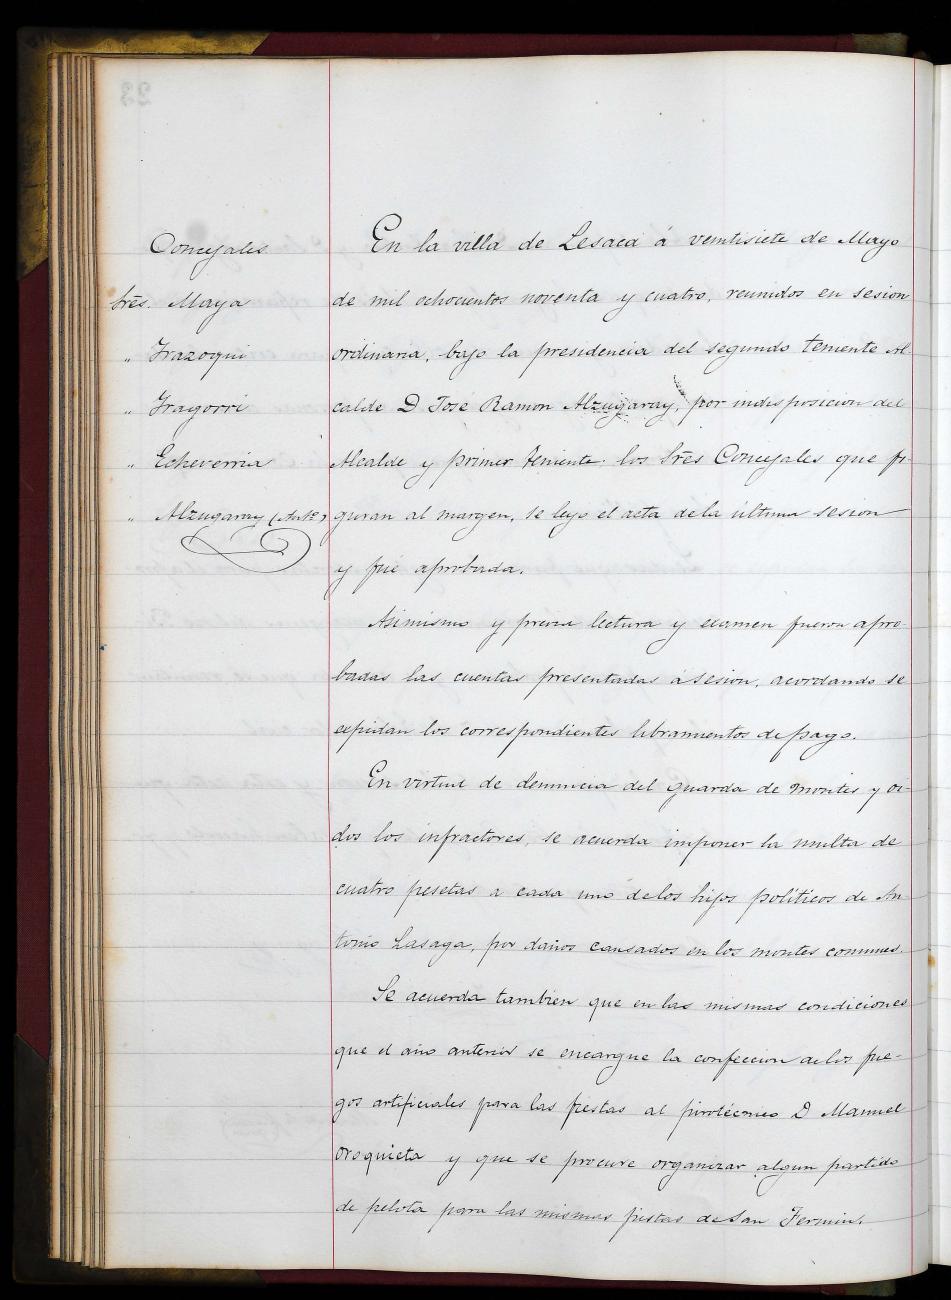 Concejales
Srēs. Maya
" Irazoqui
" Iragorri
" Echeverria
" Alzugaray (Antº)
En la villa de Lesaca á veintisiete de Mayo
de mil ochocientos noventa y cuatro, reunidos en sesion
ordinaria, bajo la presidencia del segundo teniente Al-
calde D José Ramon Alzugaray, por indisposicion del
Alcalde y primer teniente los Srēs Concejales que fi-
guran al margen, se leyo el acta de la última sesion
y fué aprobada.
Asimismo y previa lectura y examen fueron apro-
badas las cuentas presentadas á sesion, acordando se
expidan los correspondientes libramientos de pago.
En virtud de denuncia del guarda de montes y oi-
dos los infractores, se acuerda imponer la multa de
cuatro pesetas a cada uno de los hijos políticos de An-
tonio Lasaga, por daños causados en los montes comunes.
Se acuerda tambien que en las mismas condiciones
que el año anterior se encargue la confeccion de los fue-
gos artificiales para las fiestas al pirotécnico D Manuel
Oroquieta y que se procure organizar algun partido
de pelota para las mismas fiestas de San Fermin.